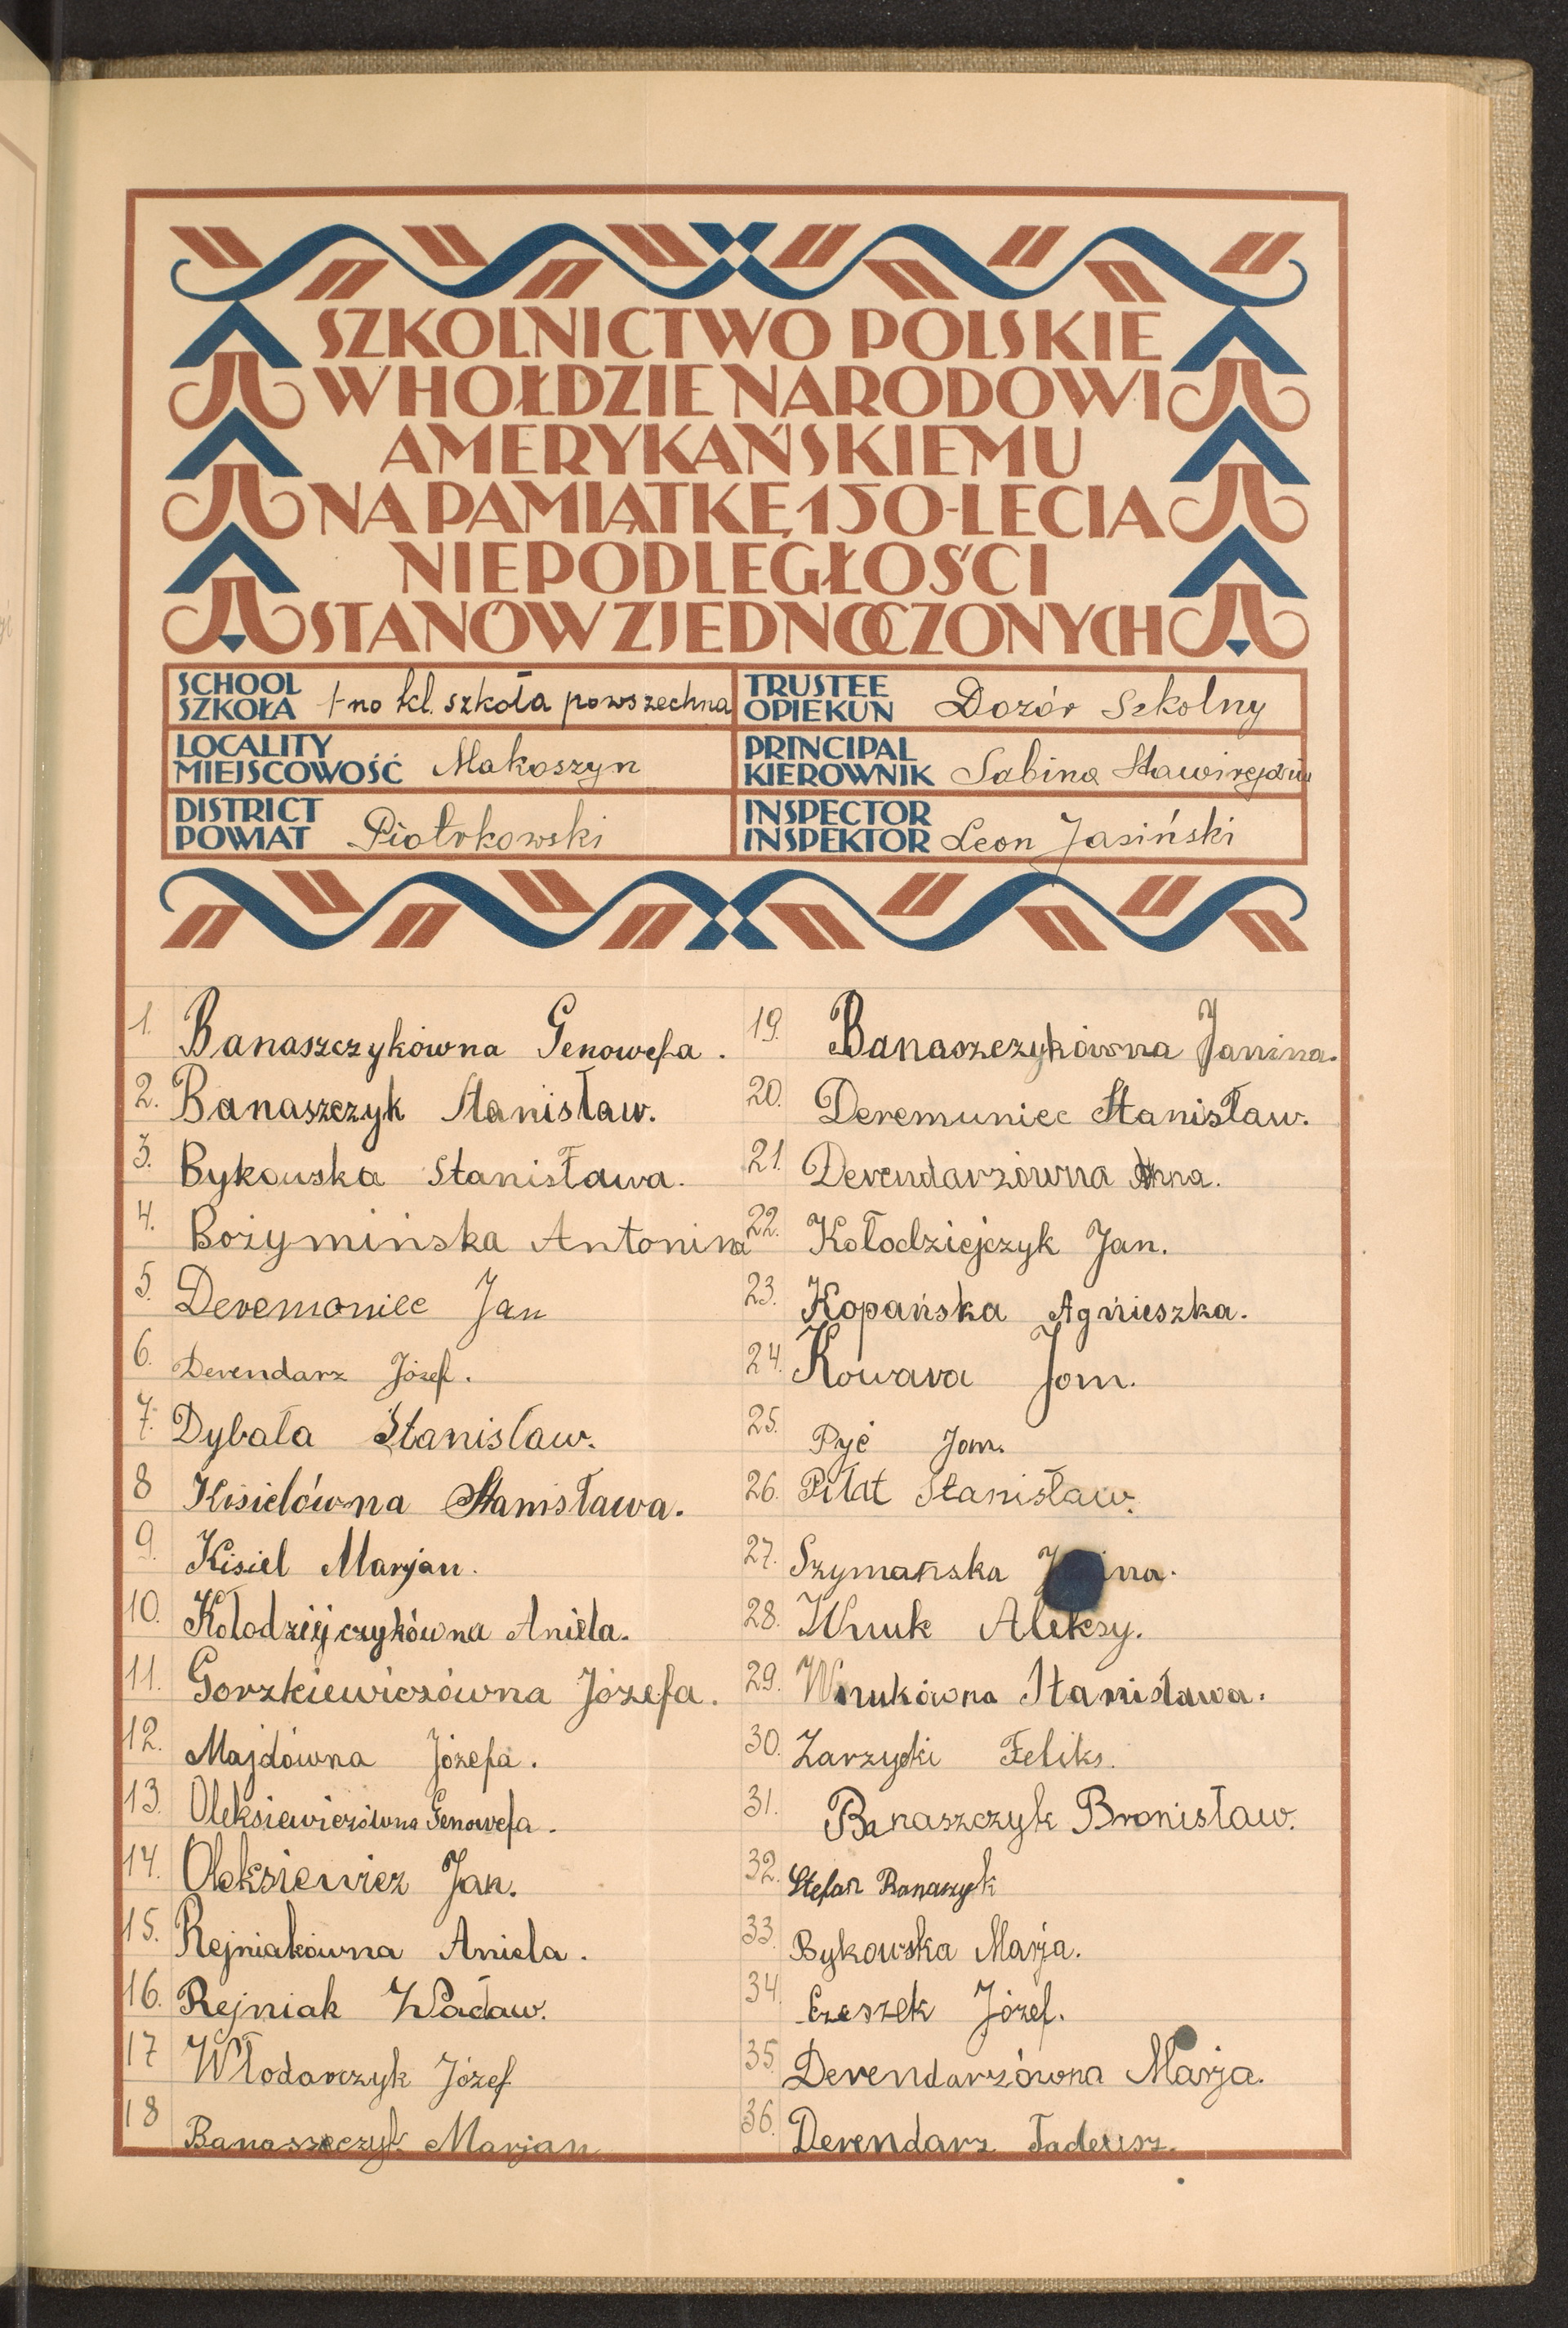 SZKOLNICTWO POLSKIE
W HOŁDZIE NARODOWI
AMERYKAŃSKIEMU
NA PAMIĄTKĘ 150-LECIA
NIEPODLEGŁOŚCI
STANÓW ZJEDNOCZONYCH
SCHOOL
SZKOŁA 1-no kl. szkoła powszechna
TRUSTEE
OPIEKUN Dozór Szkolny
LOCALITY
MIEJSCOWOŚĆ Makoszyn
PRINCIPAL
KIEROWNIK Sabina
DISTRICT
POWIAT Piotrkowski
INSPECTOR
INSPEKTOR Leon Jasiński
1. Banaszczykówna Genowefa.
2. Banaszczyk Stanisław.
3. Bykowska Stanisława.
4. Bożymińska Antonina
5. Deremoniec Jan
6. Derendarz Józef.
7. Dybała Stanisław.
8 Kisielówna Stanisława.
9. Kisiel Marjan.
10. Kołodziejczykówna Aniela.
11. Gorzkiewiczówna Józefa.
12. Majdówna Józefa.
13. Oleksiewiczówna Genowefa.
14. Oleksiewicz Jan.
15. Rejniakówna Aniela.
16. Rejniak Wacław.
17 Włodarczyk Józef
18 Banaszczyk Marjan
19. Banaszczykówna Janina.
20. Deremuniec Stanisław.
21. Derendarzówna Anna.
22. Kołodziejczyk Jan.
23. Kopańska Agnieszka.
24. Kowara Jan.
25. Pyć Jan.
26. Piłat Stanisław.
27. Szymańska
28. Wnuk Aleksy.
29. Wnukówna Stanisława.
30. Zarzycki Feliks.
31. Banaszczyk Bronisław.
32. Stefan Banaszyk
33. Bykowska Marja.
34. Czeszek Józef.
35. Derendarzówna Marja.
36. Derendarz Tadeusz.